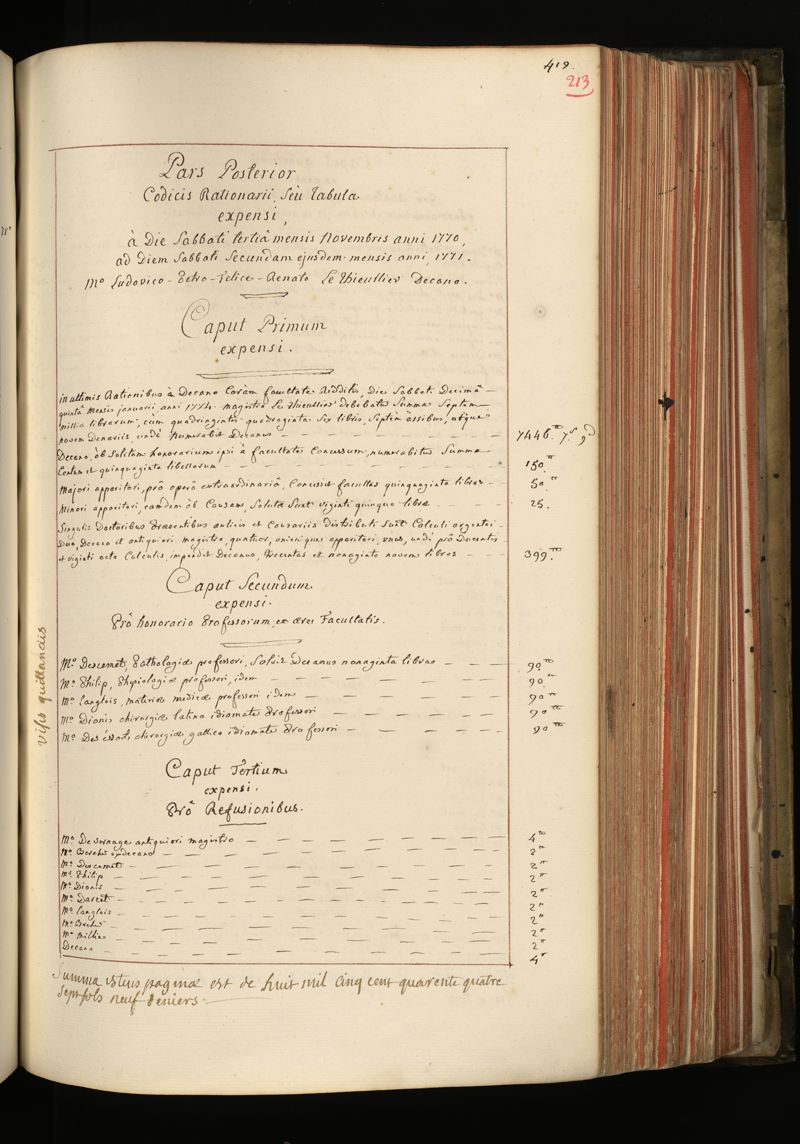 419
213
Pars Posterior
Codicis Rationarii, seu tabula
expensi,
à Die Sabbati tertiâ mensis Novembris anni 1770,
ad Diem Sabbati Secundam ejusdem mensis anni, 1771.
Mo Ludovico-Petro-Felice-Renato Le Thieullier Decano.
Caput Primum
expensi.
in ultimis Rationibus à Decano Coràm facultate Redditis, Die Sabbati Decimâ
quintâ mensis januarii, anni 1774. magistro Le Thieullier debebatur Summa Septem
millia librarum, cùm quadringintis quadraginta Sex libris, Septèm assibus, atque
novem Denariis, undè Numerabit Decanus — 7446.tt 7.s 9d
Decano, ob Solitum honorarium ipsi à facultate Concessum, numerabitur Summa
Centum et quinquaginta libellarum — 150.tt
Majori apparitori, prô operâ extraordinariâ, Concessit facultas quinquaginta libras — 50tt
Minori apparitori, eamdem ob Causam, Solutæ Sunt viginti quinque libræ — 25.
Singulis Doctoribus Præsentibus antiquis et Causariis Distributi Sunt Calculi argentei
Duo, Decano et antiquiori magistro, quatuor, unicuique apparitori, unus, undè prô Ducentis
et viginti octo Calculis, impendit Decanus, trecentas et nonaginta novem libras — 399.tt
Caput Secundum
expensi.
Prô honorario Professorum, ex ære Facultatis.
visis quittanciis
Mo. Descemet, Pathologiæ professori, Solvit Decanus nonaginta libras — 90tt
Mo. Philip, Physiologiæ professori, idem — 90tt
Mo. Langlois, materiæ medicæ professori idem — 90tt
Mo. Dionis chirurgiæ latino idiomate Professori — 90tt
Mo. Des éssarts chirurgiæ gallico idiomate Professori — 90tt
Caput Tertium
expensi.
Prô Refusionibus.
Mo. De vernage antiquiori magistro — 4tt
Mo. Bercher exdecano — 2tt
Mo. Descemet — 2tt
Mo. Philip — 2tt
Mo. Dionis — 2tt
Mo. Darcet — 2tt
Mo. Langlois — 2tt
Mo. — 2tt
Mo. Millin — 2tt
Decano — 4tt
Summa istius paginæ est de huit mil cinq cent quarente quatre
Sept sols neuf deniers.